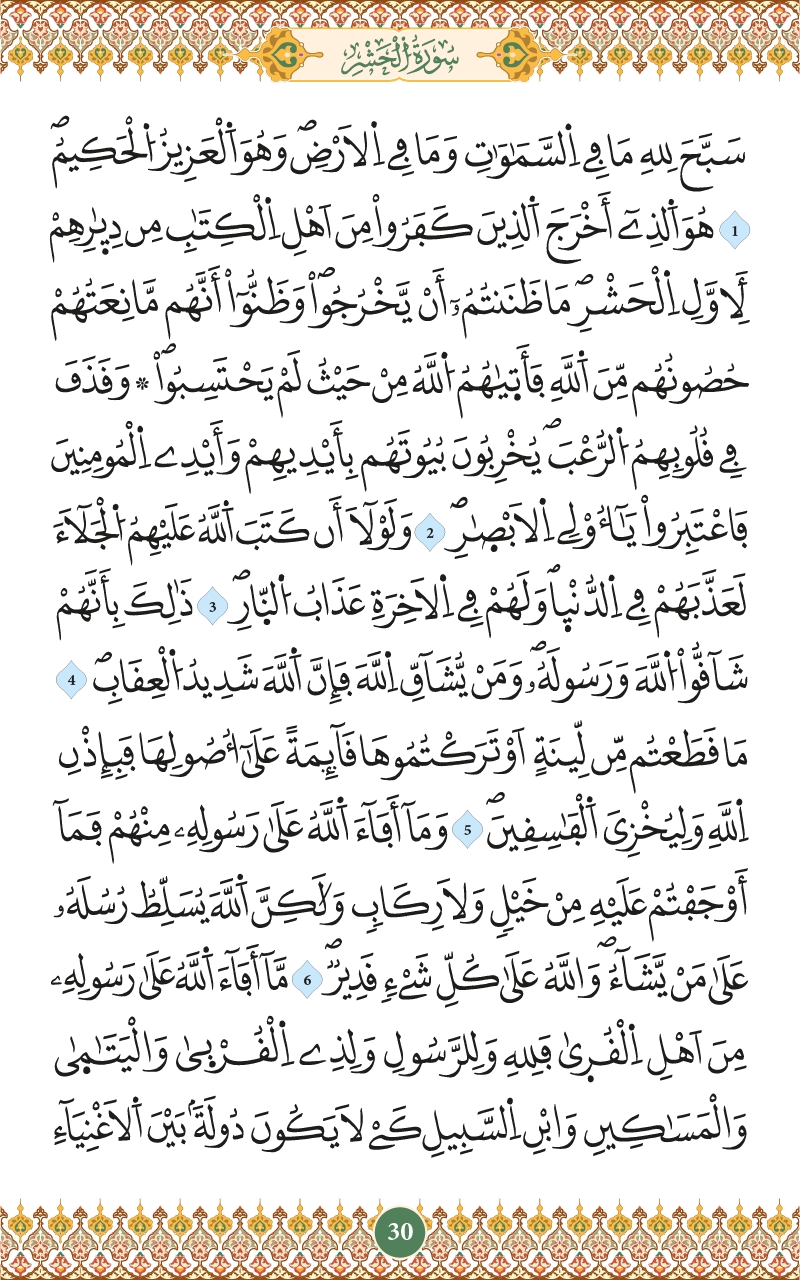 سُورَةُ الْحَشْرِ
سَبَّحَ لِلهِ مَا فِے اِ۬لسَّمَٰوَٰتِ وَمَا فِے اِ۬لَارْضِۖ وَهُوَ اَ۬لْعَزِيزُ اُ۬لْحَكِيمُۖ
1 هُوَ اَ۬لذِےٓ أَخْرَجَ اَ۬لذِينَ كَفَرُواْ مِنَ اَهْلِ اِ۬لْكِتَٰبِ مِن دِيٰ۪رِهِمْ
لِأَوَّلِ اِ۬لْحَشْرِۖ مَا ظَنَنتُمُۥٓ أَنْ يَّخْرُجُواْۖ وَظَنُّوٓاْ أَنَّهُم مَّانِعَتُهُمْ
حُصُونُهُم مِّنَ اَ۬للَّهِ فَأَت۪يٰهُمُ اُ۬للَّهُ مِنْ حَيْثُ لَمْ يَحْتَسِبُواْۖ ۞ وَقَذَفَ
فِے قُلُوبِهِمُ اُ۬لرُّعْبَۖ يُخْرِبُونَ بُيُوتَهُم بِأَيْدِيهِمْ وَأَيْدِے اِ۬لْمُومِنِينَ
فَاعْتَبِرُواْ يَٰٓأُوْلِے اِ۬لَابْصٰ۪رِۖ 2 وَلَوْلَآ أَن كَتَبَ اَ۬للَّهُ عَلَيْهِمُ اُ۬لْجَلَآءَ
لَعَذَّبَهُمْ فِے اِ۬لدُّنْي۪اۖ وَلَهُمْ فِے اِ۬لَاخِرَةِ عَذَابُ اُ۬لنّ۪ارِۖ 3 ذَٰلِكَ بِأَنَّهُمْ
شَآقُّواْ اُ۬للَّهَ وَرَسُولَهُۥۖ وَمَنْ يُّشَآقِّ اِ۬للَّهَ فَإِنَّ اَ۬للَّهَ شَدِيدُ اُ۬لْعِقَابِۖ 4
مَا قَطَعْتُم مِّن لِّينَةٍ اَوْ تَرَكْتُمُوهَا قَآئِمَةً عَلَيٰٓ أُصُولِهَا فَبِإِذْنِ
اِ۬للَّهِ وَلِيُخْزِيَ اَ۬لْفَٰسِقِينَۖ 5 وَمَآ أَفَآءَ اَ۬للَّهُ عَلَيٰ رَسُولِهِۦ مِنْهُمْ فَمَآ
أَوْجَفْتُمْ عَلَيْهِ مِنْ خَيْلٍ وَلَا رِكَابٍ وَلَٰكِنَّ اَ۬للَّهَ يُسَلِّطُ رُسُلَهُۥ
عَلَيٰ مَنْ يَّشَآءُۖ وَاللَّهُ عَلَيٰ كُلِّ شَےْءٖ قَدِيرٞۖ 6 مَّآ أَفَآءَ اَ۬للَّهُ عَلَيٰ رَسُولِهِۦ
مِنَ اَهْلِ اِ۬لْقُر۪يٰ فَلِلهِ وَلِلرَّسُولِ وَلِذِے اِ۬لْقُرْب۪يٰ وَالْيَتَٰم۪يٰ
وَالْمَسَٰكِينِ وَابْنِ اِ۬لسَّبِيلِ كَےْ لَا يَكُونَ دُولَةَۢ بَيْنَ اَ۬لَاغْنِيَآءِ
30